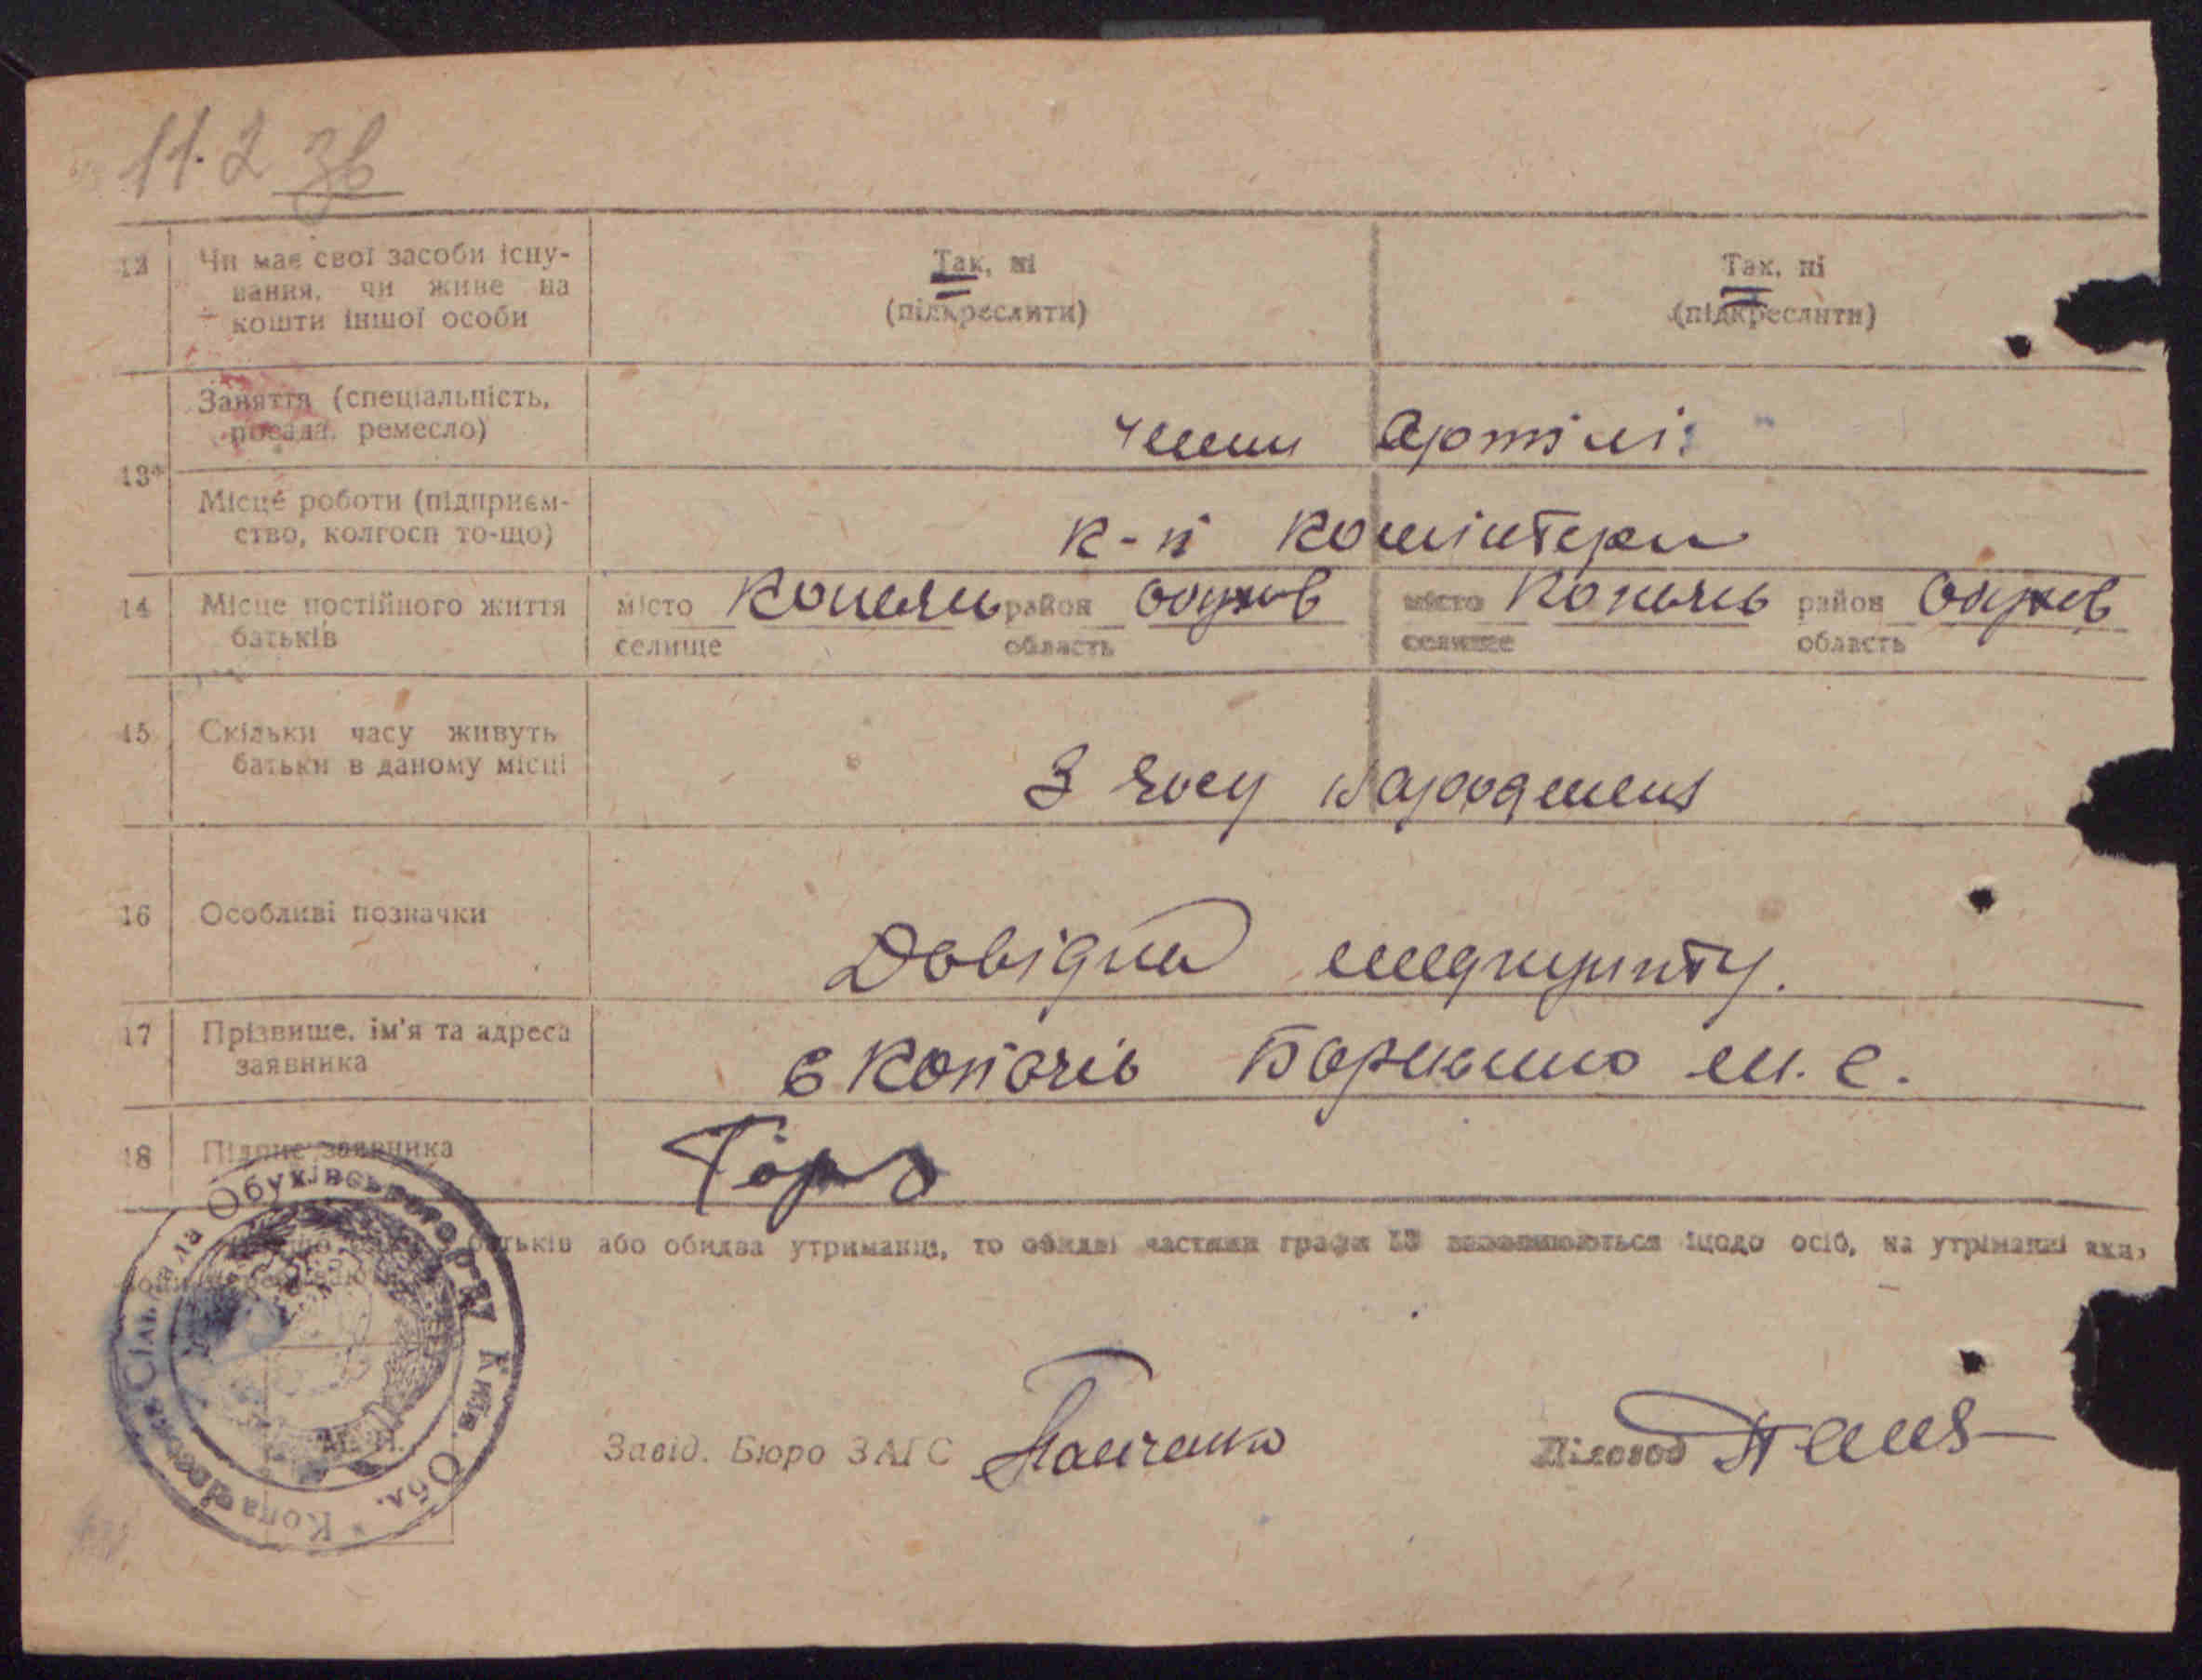 11.2 36
12 Чи має свої засоби існу-
вання, чи живе на
кошти іншої особи
Так, ні
(підкреслити)
Так, ні
(підкреслити)
13*
Заняття (спеціальність,
посада, ремесло)
члени артілі
Місце роботи (підприєм-
ство, колгосп то-що)
к-п комінтерн
14 Місце постійного життя
батьків
місто Копачів район Обухів
селище область
місто Копачів район Обухів
селище область
15 Скільки часу живуть
батьки в даному місці
З часу народження
16 Особливі позначки
Довідка медпункту.
17 Прізвище, ім'я та адреса
заявника
с Копачів м. с.
18 Підпис заявника
батьків або обидва утриманці, то обидві частини графи 13 заповнюються щодо осіб, на утриманні яких
Завід. Бюро ЗАГС Панченко
Діловод
М. П.
Копачівська Сільрада Обухівського р-ну Київ. Обл.